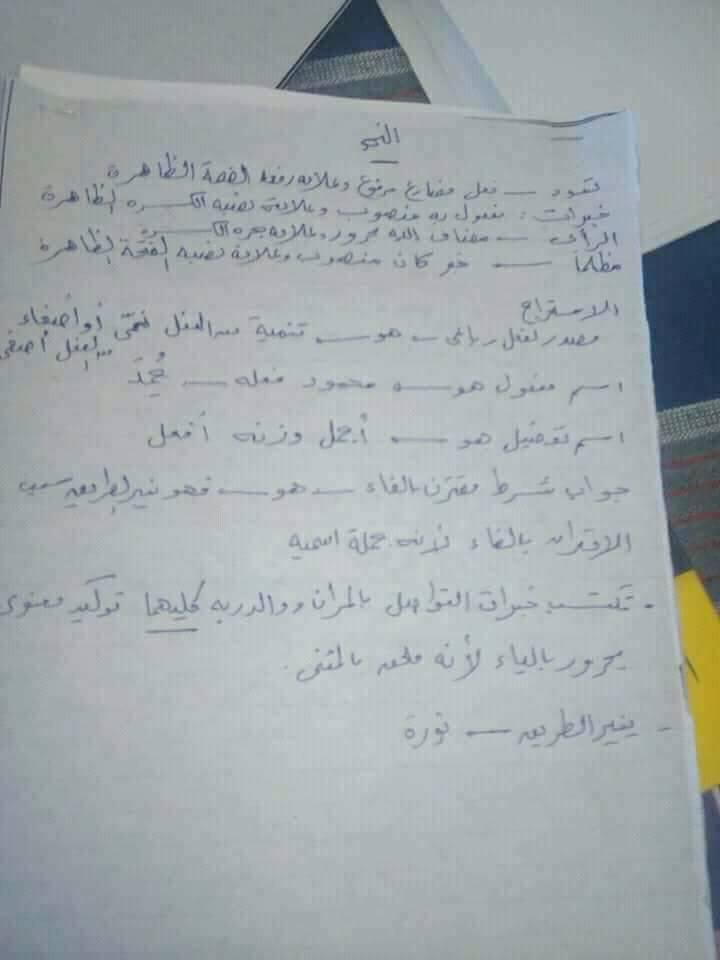 النحو
تقود — فعل مضارع مرفوع وعلامة رفعه الضمة الظاهرة
خبرات : مفعول به منصوب وعلامة نصبه الكسره الظاهرة
الرأى — مضاف اليه مجرور وعلامة جره الكسرة
مظلماً — خبر كان منصوب وعلامة نصبه الفتحة الظاهرة
الاستخراج
مصدر لفعل رباعى — هو — تنمية من الفعل نمّى أو أصغاء
من الفعل أصغى
اسم مفعول هو — محمود فعله — حُمِدَ
اسم تفضيل هو — أجمل وزنه أفعل
جواب شرط مقترن بالفاء — هو — فهو ينير الطريق سبب
الاقتران بالفاء لأنه جملة اسمية
- تكتسب خبرات التواصل بالمران والدربه كليهما توكيد معنوى
مجرور بالياء لأنه ملحق بالمثنى .
- ينير الطريق —